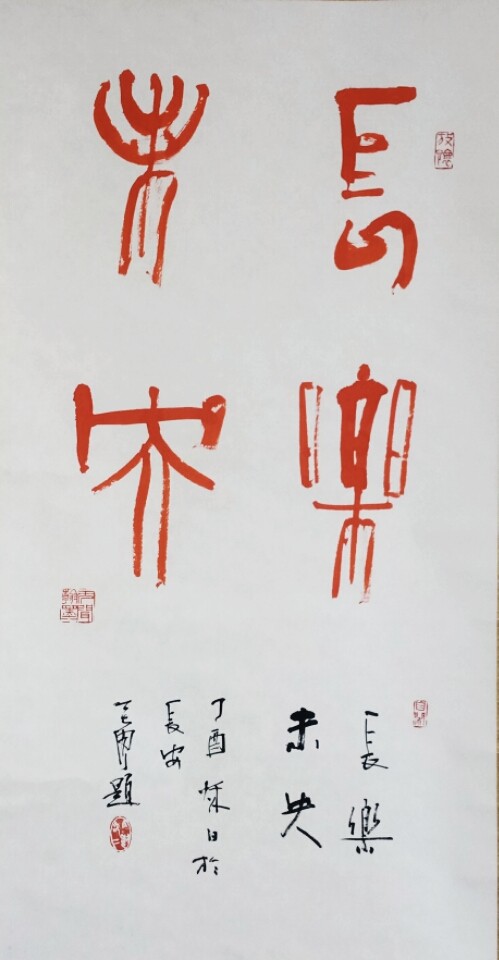 長樂
未央
長樂
未央
丁酉秌日於
長安
題